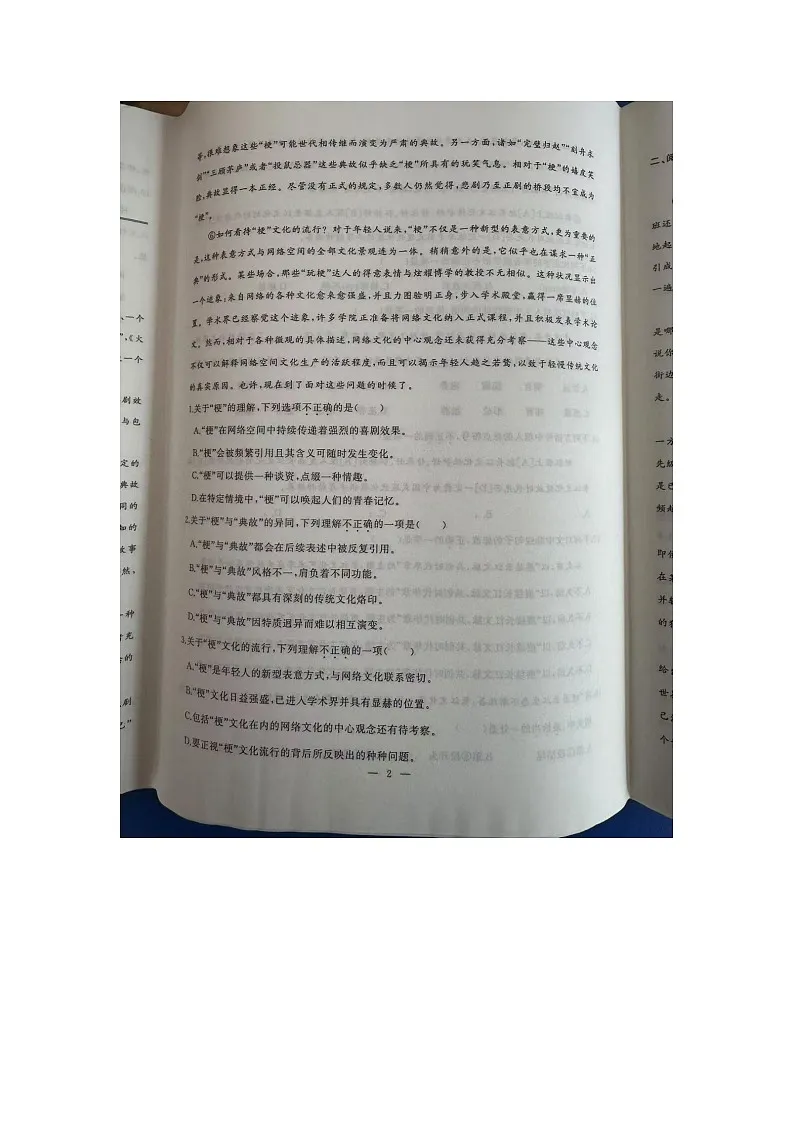 等,很难想象这些“梗”可能世代相传继而演变为严肃的典故。另一方面,诸如“完璧归赵”“刻舟求
剑”“三顾茅庐”或者“投鼠忌器”这些典故似乎缺乏“梗”所具有的玩笑气息。相对于“梗”的嬉皮笑
脸,典故显得一本正经。尽管没有正式的规定,多数人仍然觉得,悲剧乃至正剧的桥段均不宜成为
“梗”。
⑥如何看待“梗”文化的流行?对于年轻人说来,“梗”不仅是一种新型的表意方式,更为重要的
是,这种表意方式与网络空间的全部文化景观连为一体。稍稍意外的是,它似乎也在谋求一种“正
典”的形式。某些场合,那些“玩梗”达人的得意表情与炫耀博学的教授不无相似。这种状况显示出
一个迹象:来自网络的各种文化愈来愈强盛,并且力图验明正身,步入学术殿堂,赢得一席显赫的位
置。学术界已经察觉这个迹象,许多学院正准备将网络文化纳入正式课程,并且积极发表学术论
文。然而,相对于各种微观的具体描述,网络文化的中心观念还未获得充分考察——这些中心观念
不仅可以解释网络空间文化生产的活跃程度,而且可以揭示年轻人趋之若鹜,以致于轻慢传统文化
的真实原因。也许,现在到了面对这些问题的时候了。
1.关于“梗”的理解,下列选项不正确的是( )
A.“梗”在网络空间中持续传递着强烈的喜剧效果。
B.“梗”会被频繁引用且其含义可随时发生变化。
C.“梗”可以提供一种谈资,点缀一种情趣。
D.在特定情境中,“梗”可以唤起人们的青春记忆。
2.关于“梗”与“典故”的异同,下列理解不正确的一项是( )
A.“梗”与“典故”都会在后续表述中被反复引用。
B.“梗”与“典故”风格不一,肩负着不同功能。
C.“梗”与“典故”都具有深刻的传统文化烙印。
D.“梗”与“典故”因特质迥异而难以相互演变。
3.关于“梗”文化的流行,下列理解不正确的一项( )
A.“梗”是年轻人的新型表意方式,与网络文化联系密切。
B.“梗”文化日益强盛,已进入学术界并具有显赫的位置。
C.包括“梗”文化在内的网络文化的中心观念还有待考察。
D.要正视“梗”文化流行的背后所反映出的种种问题。
— 2 —
、一个
”,《火
一个
剧效
与包
定的
典故
同的
知的
故事
然,
一种
光
的
剧
己”
二、阅
班还
地起
引成
一遍
是哪
说你
街边
走。
一方
先
是已
频
即使
在
并
的
给
世
己
个